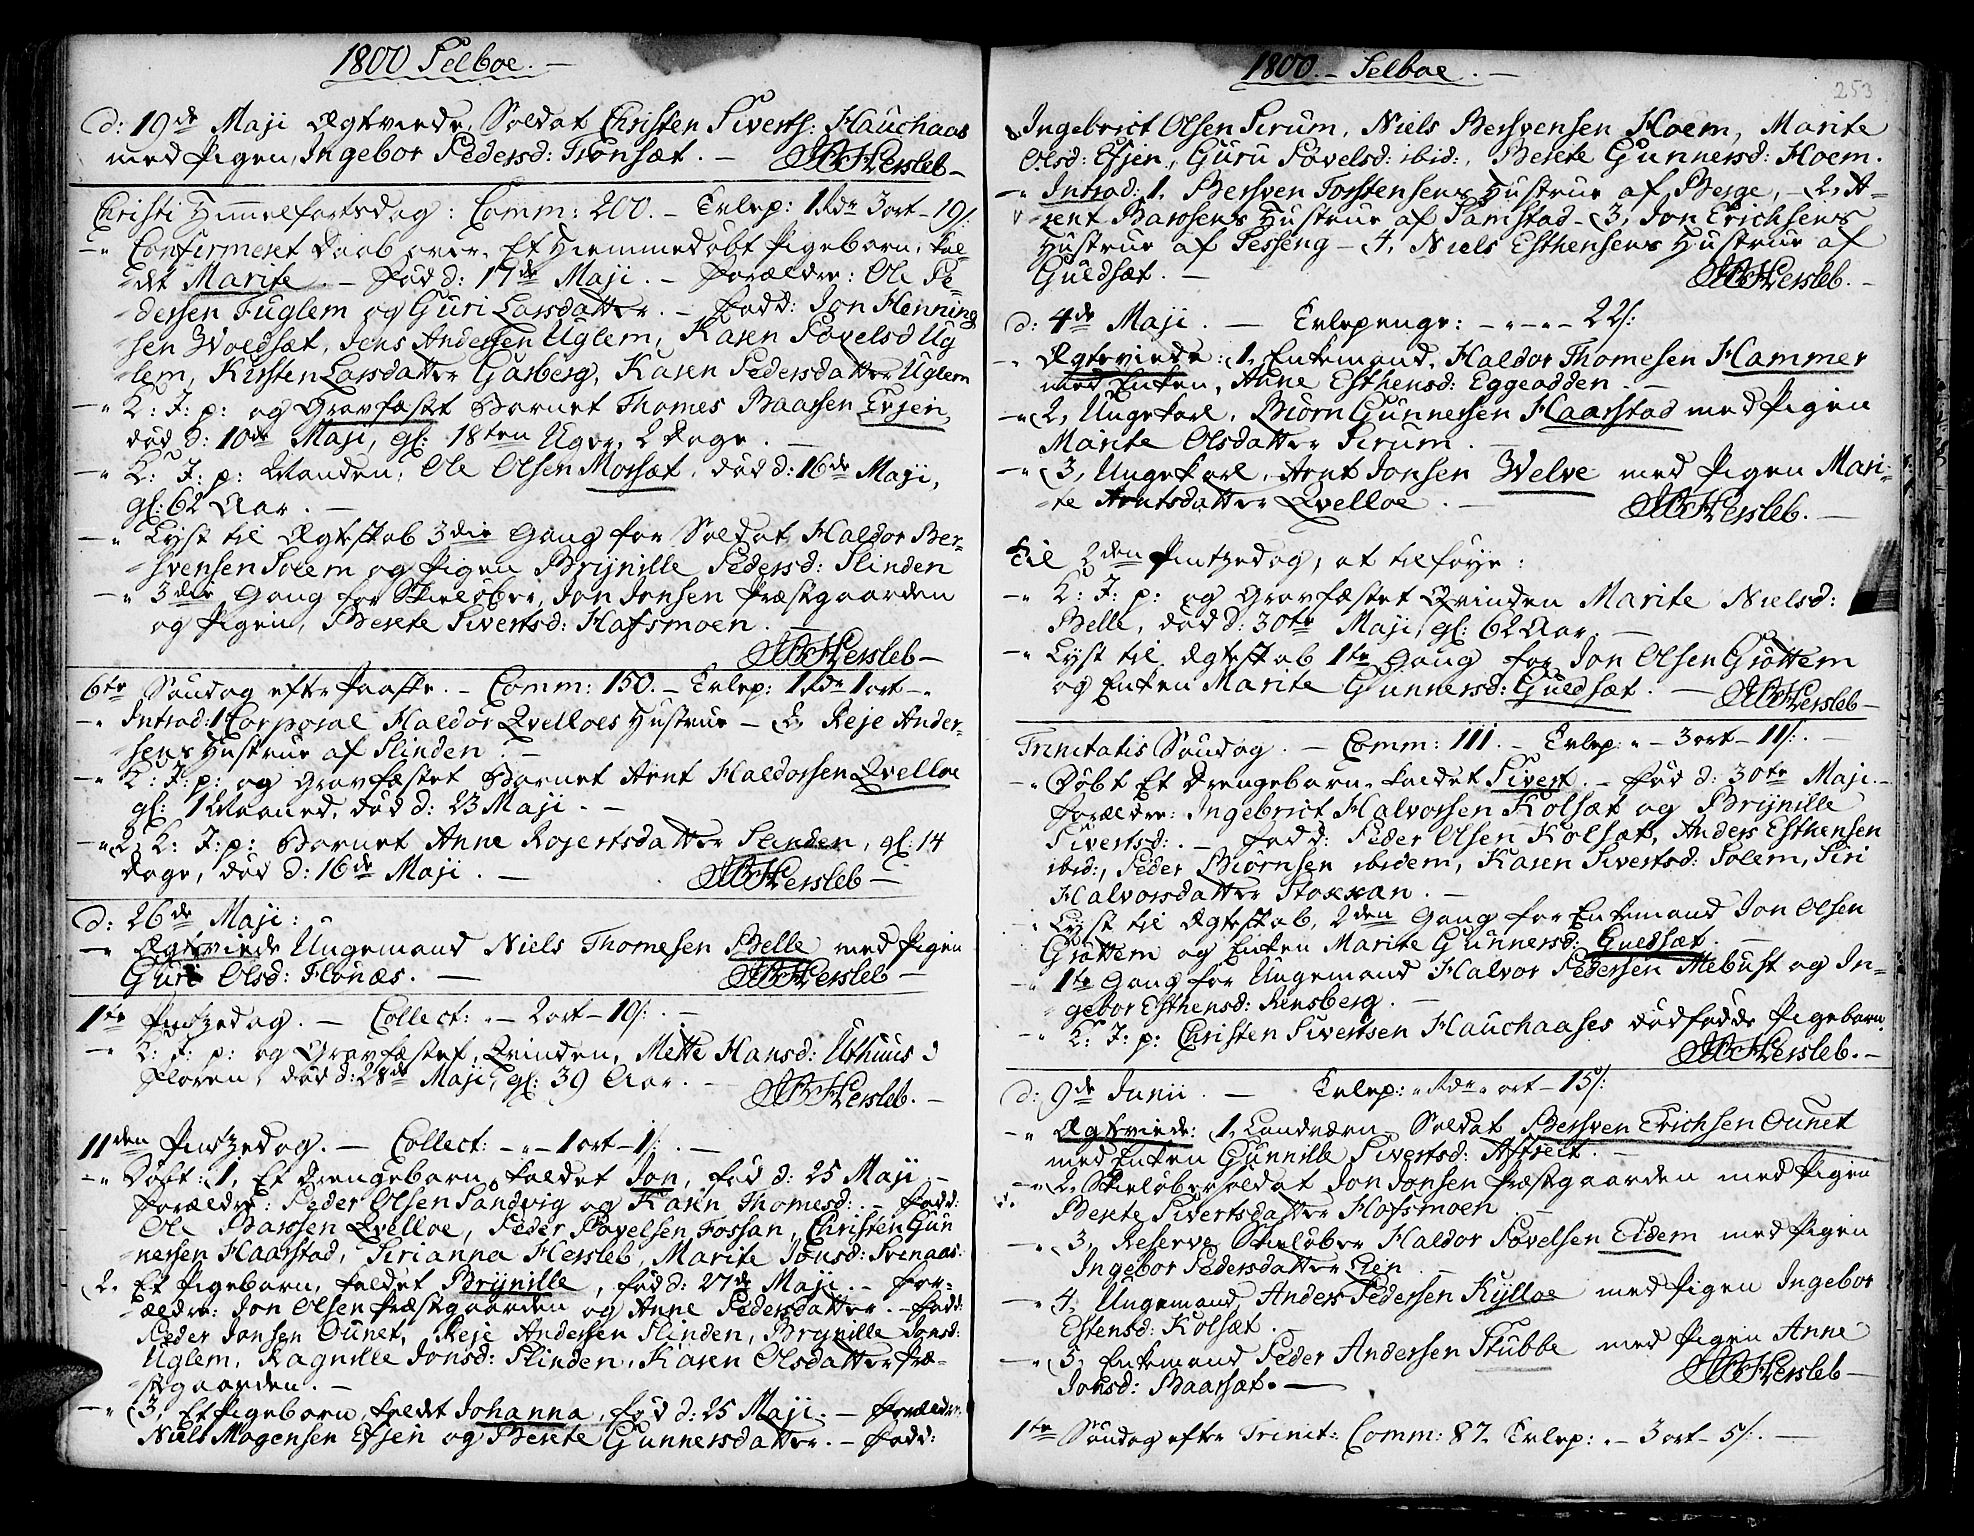 1800 Selboe. -
d: 19de Maji Ægteviede, Soldat Christen Siverts: Hauchaas
med Pigen, Ingebor Pedersd: Trönsæt. - Hersleb -
Christi Himmelfartsdag: Comm: 200. - Erlep: 1 Rdr 3 ort - 19/.
-" Confermeret Daab over Et Hiemmedøbt Pigebarn, kal-
det Marite. - fød d: 17de Maji. - Forældre: Ole Pe-
dersen Fuglem og Guri Larsdatter. - Fadd: Jon Henning
sen Woldsæt, Jens Andersen Uglem, Karen Povelsd Ug
lem, Kirsten Larsdatter Garberg, Karen Pedersdatter Uglem
-" K: J: p: og Gravfæstet Barnet Thomes Baarsen Evjen,
død d: 10de Maji, gl: 18ten Uger, 2 Dage. -
-" K: J: p: Manden, Ole Olsen Morsæt, død d: 16de Maji,
gl: 62 Aar. -
-" Lyst til Ægteskab 3die Gang for Soldat Haldor Ber-
svensen Solem og Pigen Brynille Pedersd: Slinden
-" 3die Gang for Skieløber, Jon Jonsen Præstgaarden
og Pigen, Berete Sivertsd: Hofsmoen. -
Hersleb -
6te Søndag efter Paaske. - Comm: 150. - Erlep: 1 Rdr 1 ort -"
-" Introd: 1 Corporal Haldor Qvelloes Hustrue - 2, Reje Ander-
sens Hustrue af Slinden. -
-" K: J: p: og Gravfæstet Barnet Arnt Haldorsen Qvelloe
gl: 1 Maaned, død d: 23 Maji. -
-" 2, K: J: p: Barnet Anne Rojertsdatter Slinden, gl: 14
Dage, død d: 16de Maji. - Hersleb -
d: 26de Maji:
-" Ægteviede Ungemand Niels Thomesen Belle med Pigen
Guri Olsd: Flønæs. - Hersleb -
1te Pintzedag. - Collect: " - 2 ort - 10/. -
-" K: J: p: og Gravfæstet, Qvinden, Mette Hansd: Uthuus i
Floren, død d: 28de Maji, gl: 39 Aar. -
Hersleb. -
11den Pintzedag. - Collect: - " - 1 ort - 1/. -
-" Døbt: 1, Et Drengebarn, kaldet Jon, fød d: 25 Maji -
Forældre: Peder Olsen Sandvig og Karen Thomesd: - Fadd:
Ole Barssen Qvelloe, Peder Povelsen Fossan, Christen Gun
nersen Haarstad, Sirianna Hersleb, Marite Jonsd: Svenaas.
(2. Et Pigebarn, kaldet Brynille, fød d: 27de Maji. - For-
ældre: Jon Olsen Præstgaarden og Anne Pedersdatter. - Fadd:
Peder Jonsen Ounet, Reje Andersen Slinden, Brynille Jonsd:
Uglem, Ragnille Jonsd: Slinden, Karen Olsdatter Præ-
stgaarden. -
-" (3, Et Pigebarn, kaldet Johanna, fød d: 25 Maji. - Forældre:
Niels Mogensen Efjen og Berete Gunnersdatter. - Fadd:
1800. - Selboe. -
253
Ingebrict Olsen Sirum, Niels Bersvensen Hoem, Marite
Olsd: Efjen, Guru Povelsd: ibid:, Berete Gunnersd: Hoem.
-" Introd: 1, Bersven Torstensens Hustrue af Berge, - 2, A-
rent Barosens Hustrue af Samstad - 3, Jon Erichsens
Hustrue af Sesseng - 4, Niels Esthensens Hustrue af
Guldsæt. - Hersleb. -
d: 4de Maji. - Erlepenge: - " - " - 22/:
-" Ægteviede: (1, Enkemand, Haldor Thomesen Hammer
med Enken, Anne Esthensd: Eggeodden. -
-" (2, Ungekarl, Biörn Gunnersen Haarstad med Pigen
Marite Olsdatter Sirum. -
-" (3, Ungekarl, Arnt Jonsen Welve med Pigen Mari-
te Arntsdatter Qvelloe. - Hersleb. -
Til 2den Pintzedag, at tilføye:
-" K: J: p: og Gravfæstet Qvinden Marite Nielsd:
Belle, død d: 30te Maji, gl: 62 Aar. -
-" Lyst til Ægteskab 1te Gang for Jon Olsen Gröttem
og Enken Marite Gunnersd: Guldsæt. - Hersleb -
Trinitatis Søndag. - Comm: 111. - Erlep: " - 3 ort - 11/. -
-" Døbt Et Drengebarn, kaldet Sivert. - fød d: 30te Maji. -
Forældre: Ingebrict Halvorsen Kolsæt og Brynille
Sivertsd: - Fadd: Peder Olsen Kolsæt, Anders Esthensen
ibid:, Peder Biörnsen ibidem, Karen Sivertsd: Solem, Siri
Halvorsdatter Stokkan. -
-" Lyst til Ægteskab, 2den Gang for Enkemand Jon Olsen
Gröttem og Enken Marite Gunnersd: Guldsæt. -
-" 1te Gang for Ungemand Halvor Pedersen Mebust og In-
gebor Esthensd: Rensberg. -
-" K: J: p: Christen Sivertsen Hauchaases dødfødde Pigebarn.
Hersleb. -
d: 9de Junii. - Erlep: " Rdr " ort - 15/:
-" Ægteviede: (1, Landværn - Soldat Bersven Erichsen Ounet
med Enken Gunnille Sivertsd: Aftreit. -
-" 2, Skieløbersoldat Jon Jonsen Præstgaarden med Pigen
Berete Sivertsdatter Hofsmoen. -
-" 3, Reserve Skieløber Haldor Povelsen Eidem med Pigen
Ingebor Pedersdatter Ren. -
-" 4, Ungemand Anders Pedersen Kylloe med Pigen Ingebor
Estensd: Kolsæt. -
-" (5, Enkemand Peder Andersen Stubbe med Pigen Anne
Jonsd: Baarsæt. - Hersleb -
1te Søndag efter Trinit: Comm: 87. Erlep: " - 3 ort - 5/. -